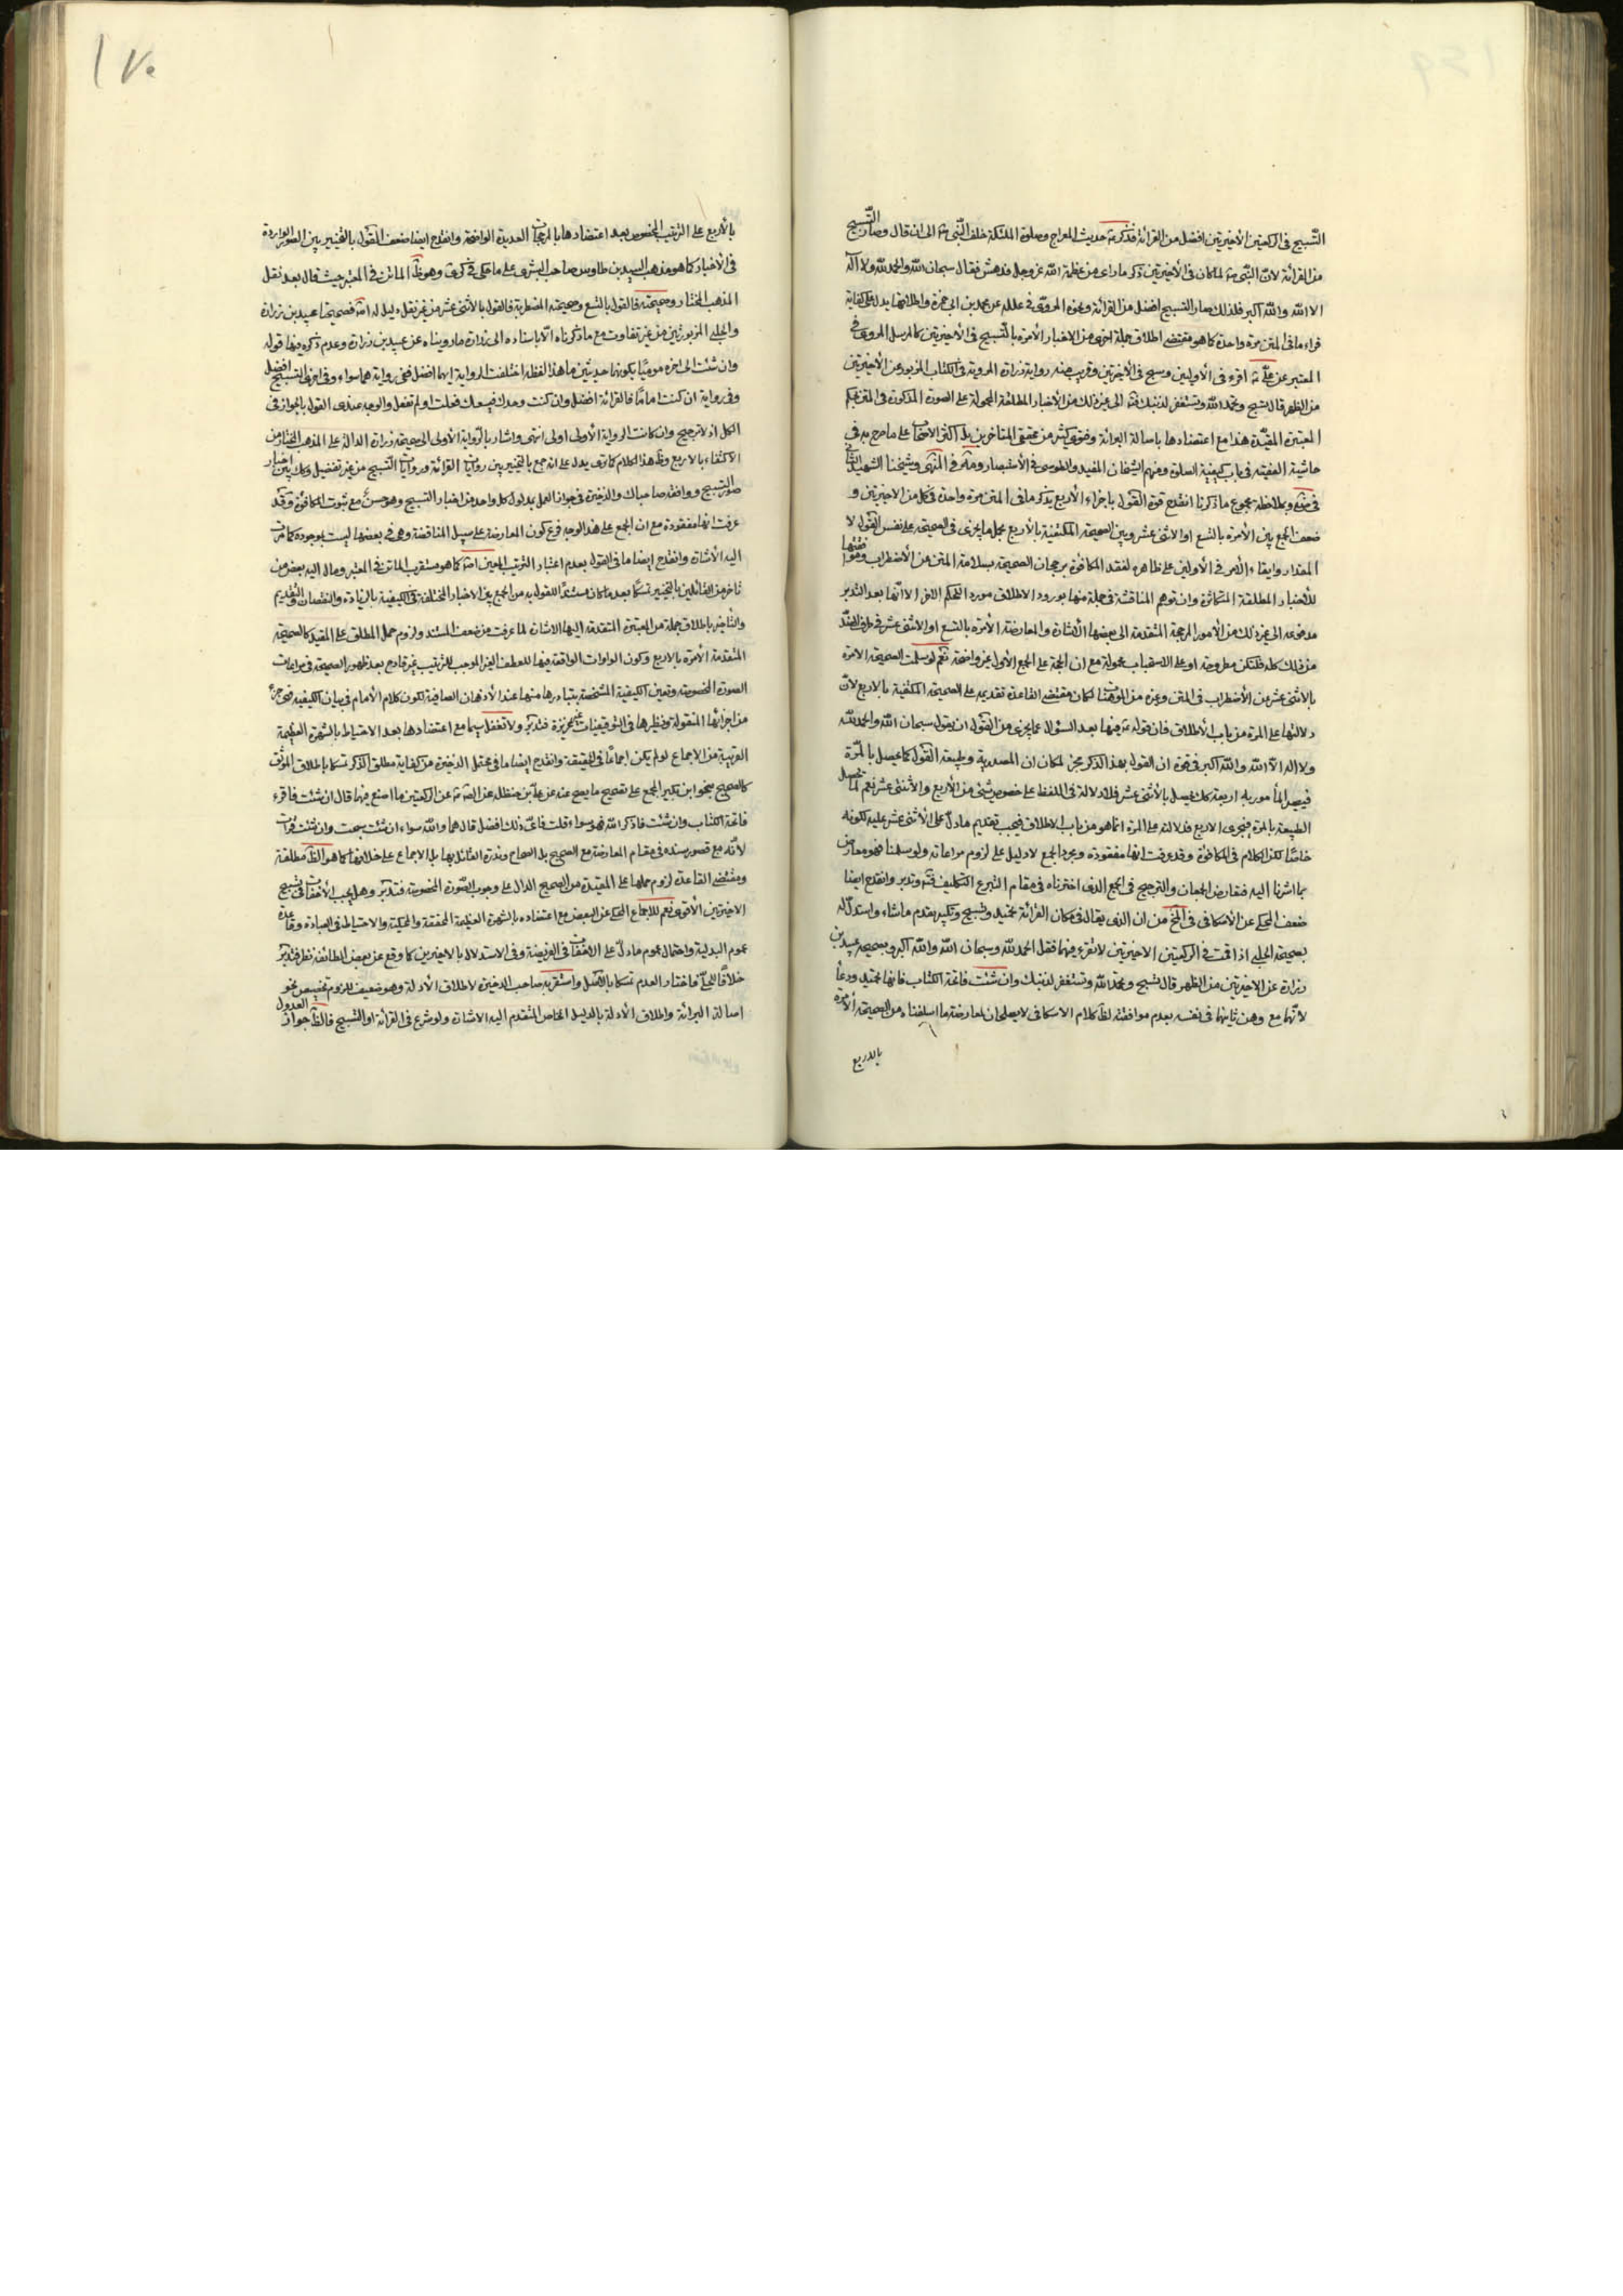 التسبيح في الركعتين الأخيرتين افضل من القرائة فذكر حديث المعراج وصلوة الملئكة خلف النبي الى ان قال وصار التسبيح
من القرائة لانّ النبي لما كان في الأخيرتين ذكر ما راى من عظمة الله عز وجل فدهش فقال سبحان الله والحمد لله ولا اله
الا الله والله اكبر فلذلك صار التسبيح افضل من القرائة ونحوه المروي في علله عن محمد بن ابي حمزة واطلاقها يدل على كفاية
قراءة ما في المتن مرة واحدة كما هو مقتضى اطلاق جملة اخرى من الاخبار الآمرة بالتسبيح في الأخيرتين كالمرسل المروي في
المعتبر عن علي اقرء في الأوليين وسبح في الأخيرتين وقريب منه رواية زرارة المروية في الكتاب المزبور عن الأخيرتين
من الظهر قال تسبح وتحمد الله وتستغفر لذنبك الى غير ذلك من الأخبار المطلقة المحمولة على الصورة المذكورة في المتن
المعتبرة المقيدة هذا مع اعتضادها باصالة البرائة وفتوى كثير من محققي المتاخرين بل اكثر الاصحاب على ما صرح به في
حاشية الفقيه في باب كيفية الصلوة ومنهم الشيخان المفيد والطوسي في الأستبصار وفي المنتهى وشيخنا الشهيد الثاني
وبملاحظة مجموع ما ذكرنا انقدح قوة القول باجزاء الأربع بذكر ما في المتن مرة واحدة في كل من الاخيرتين و
ضعف الجمع بين الآمرة بالتسع او الاثنى عشر وبين الصحيحة المكتفية بالأربع بحمل ما يجزى في الصحيحة على نفس القول لا
المقدار وابقاء الأمر في الأوليين على ظاهره لفقد المكافوة برجحان الصحيحة بسلامة المتن من الأضطراب
للأخبار المطلقة المتكاثرة وان توهم المناقشة في جملة منها بورود الاطلاق مورد الحكم الاخر الا انها بعد التدبر
مدفوعة الى غير ذلك من الأمور المرجحة المتقدمة الى بعضها الأشارة والمعارضة الآمرة بالتسع او الاثنى عشر في طرف الضد
من ذلك كله فلتكن مطروحة او على الاستحباب محمولة مع ان الحجة على الجمع الأول غير واضحة نعم لو سلمت الصحيحة الامرة
بالاثنى عشر من الأضطراب في المتن وغيره من الموهنات لكان مقتضى القاعدة تقديمها على الصحيحة المكتفية بالاربع لانّ
دلالتها على المرة من باب الأطلاق فان قوله فيها بعد السؤال عما يجزى من القول ان يقول سبحان الله والحمد لله
ولا اله الا الله والله اكبر في قوة ان القول بهذا الذكر مجز لمكان ان المصدرية وطبيعة القول كما يحصل بالمرة
فيصير المأمور به اربعة كك يحصل بالأثنى عشر فلا دلالة في اللفظ على خصوص شيء من الأربع والأثنى عشر نعم لما تحصل
الطبيعة بالمرة فيجزى الاربع فدلالته على المرة انما هو من باب الاطلاق فيجب تقديم ما دل على الأثنى عشر عليه لكونه
خاصا لكن الكلام في المكافوة وقد عرفت انها مفقودة ومجرد الجمع لا دليل على لزوم مراعاته ولو سلمنا فهو معارض
بما اشرنا اليه فتعارض الجمعان والترجيح في الجمع الذي اخترناه في مقام التبرع وتدبر وانقدح ايضا
ضعف المحكي عن الأسكافي في من ان الذي يقال في مكان القرائة تحميد وتسبيح وتكبير يقدم ما شاء واستدل له
بصحيحة الحلبي اذا قمت في الركعتين الاخيرتين لا تقرء فيهما فقل الحمد لله وسبحان الله والله اكبر وبصحيحة عبيد بن
زرارة عن الاخيرتين من الظهر قال تسبح وتحمد الله وتستغفر لذنبك وان شئت فاتحة الكتاب فانها تحميد ودعأ
لأنهما مع وهن ثانيتهما في نفسه بعدم موافقته لظاهر كلام الاسكافي لا يصلحان لمعارضة ما اسلفناه من الصحيحة الآمرة
بالاربع
١٧٠
بالأربع على الترتيب المخصوص بعد اعتضادها بالمرجحات العديدة الواضحة وانقدح ايضا ضعف القول بالتخيير بين الصور الواردة
في الأخبار كما هو مذهب السيد بن طاوس صاحب البشرى على ما حكى في وهو ظ الماتن في المعتبر حيث قال بعد نقل
المذهب المختار وصحيحته فالقول بالتسع وصحيحته المضطربة فالقول بالأثنى عشر من غير نقل دليل له فصحيحتا عبيد بن زرارة
والحلبي المزبورتين من غير تفاوت مع ما ذكرناه الا باسناده الى زرارة ما رويناه عن عبيد بن زرارة وعدم ذكره فيها قوله
وان شئت الى اخره موميا بكونها حديثين ما هذا لفظه اختلفت الرواية ايهما افضل ففي رواية هما سواء وفي اخرى التسبيح افضل
وفي رواية ان كنت اماما فالقرائة افضل وان كنت وحدك فيسعك فعلت او لم تفعل والوجه عندي القول بالجواز في
الكل اذ لا ترجيح وان كانت الرواية الأولى اولى انتهى واشار بالرواية الأولى الى صحيحة زرارة الدالة على المذهب المختار من
الاكتفاء بالاربع وظ هذا الكلام كما ترى يدل على انه جمع بالتخيير بين روايات القرائة وروايات التسبيح من غير تفضيل وكك بين اخبار
صور التسبيح ووافقه صاحبا ك والذخيرة في جواز العمل بمدلول كل واحد من اخبار التسبيح وهو حسن مع ثبوت المكافوة وقد
عرفت انها مفقودة مع ان الجمع على هذا الوجه فرع كون المعارضة على سبيل المناقضة وهي في بعضها ليست بموجودة كما مرت
اليه الأشارة وانقدح ايضا ما في القول بعدم اعتبار الترتيب المعين كما هو مستقرب الماتن في المعتبر ومال اليه بعض من
تاخر من القائلين بالتخيير تمسكا بعد ما كان مستندا للقول به من الجمع بين الاخبار المختلفة في الكيفية بالزيادة والنقصان والتقديم
والتاخير باطلاق جملة من المعتبرة المتقدمة اليها الاشارة لما عرفت من ضعف المستند ولزوم حمل المطلق على المقيد كالصحيحة
المتقدمة الآمرة بالاربع وكون الواوات الواقعة فيها للعطف الغير الموجب للترتيب غير قادح بعد ظهور الصحيحة في مراعات
الصورة المخصوصة وتعين الكيفية المشخصة بتبادرها منها عند الأذهان الصافية لكون كلام الأمام في بيان الكيفية
من اجزائها المنقولة ونظيرها في التوقيفيات غزيرة فتدبر ولا تغفل سيما مع اعتضادها بعد الاحتياط بالشهرة العظيمة
القريبة من الاجماع لو لم يكن اجماعا في الحقيقة وانقدح ايضا ما في محتمل الذخيرة من كفاية مطلق الذكر تمسكا باطلاق الموثق
كالصحيح بابن بكير المجمع على تصحيح ما يصح عنه عن علي بن حنظلة عن الصادق عن الركعتين ما اصنع فيهما قال ان شئت فاقرء
فاتحة الكتاب وان شئت فاذكر الله فهو سواء قلت فاي ذلك افضل قال هما والله سواء ان شئت سبحت وان شئت قرات
لانه مع قصور سنده في مقام المعارضة مع الصحيح بل الصحاح وندرة القائل بها بل الاجماع على خلافها كما هو الظاهر مطلقة
ومقتضى القاعدة لزوم حملها على المقيدة من الصحيح الدال على وجوب الصورة المخصوصة فتدبر وهل يجب الأخفات في تسبيح
الاخيرتين الأقوى نعم للاجماع المحكي عن البعض مع اعتضاده بالشهرة العظيمة المحققة والمحكية والاحتياط في العبادة وقاعدة
عموم البدلية واحتمال عموم ما دل على الاخفات في الفريضة وفي الاستدلال بالاخيرين كما وقع عن بعض الطائفة نظر فتدبر
خلافا للحلي فاختار العدم تمسكا بالأصل واستقربه صاحب الذخيرة لاطلاق الأدلة وهو ضعيف للزوم تخصيص نحو
اصالة البرائة واطلاق الأدلة بالدليل الخاص المتقدم اليه الاشارة ولو شرع في القرائة او التسبيح فالظ جواز العدول